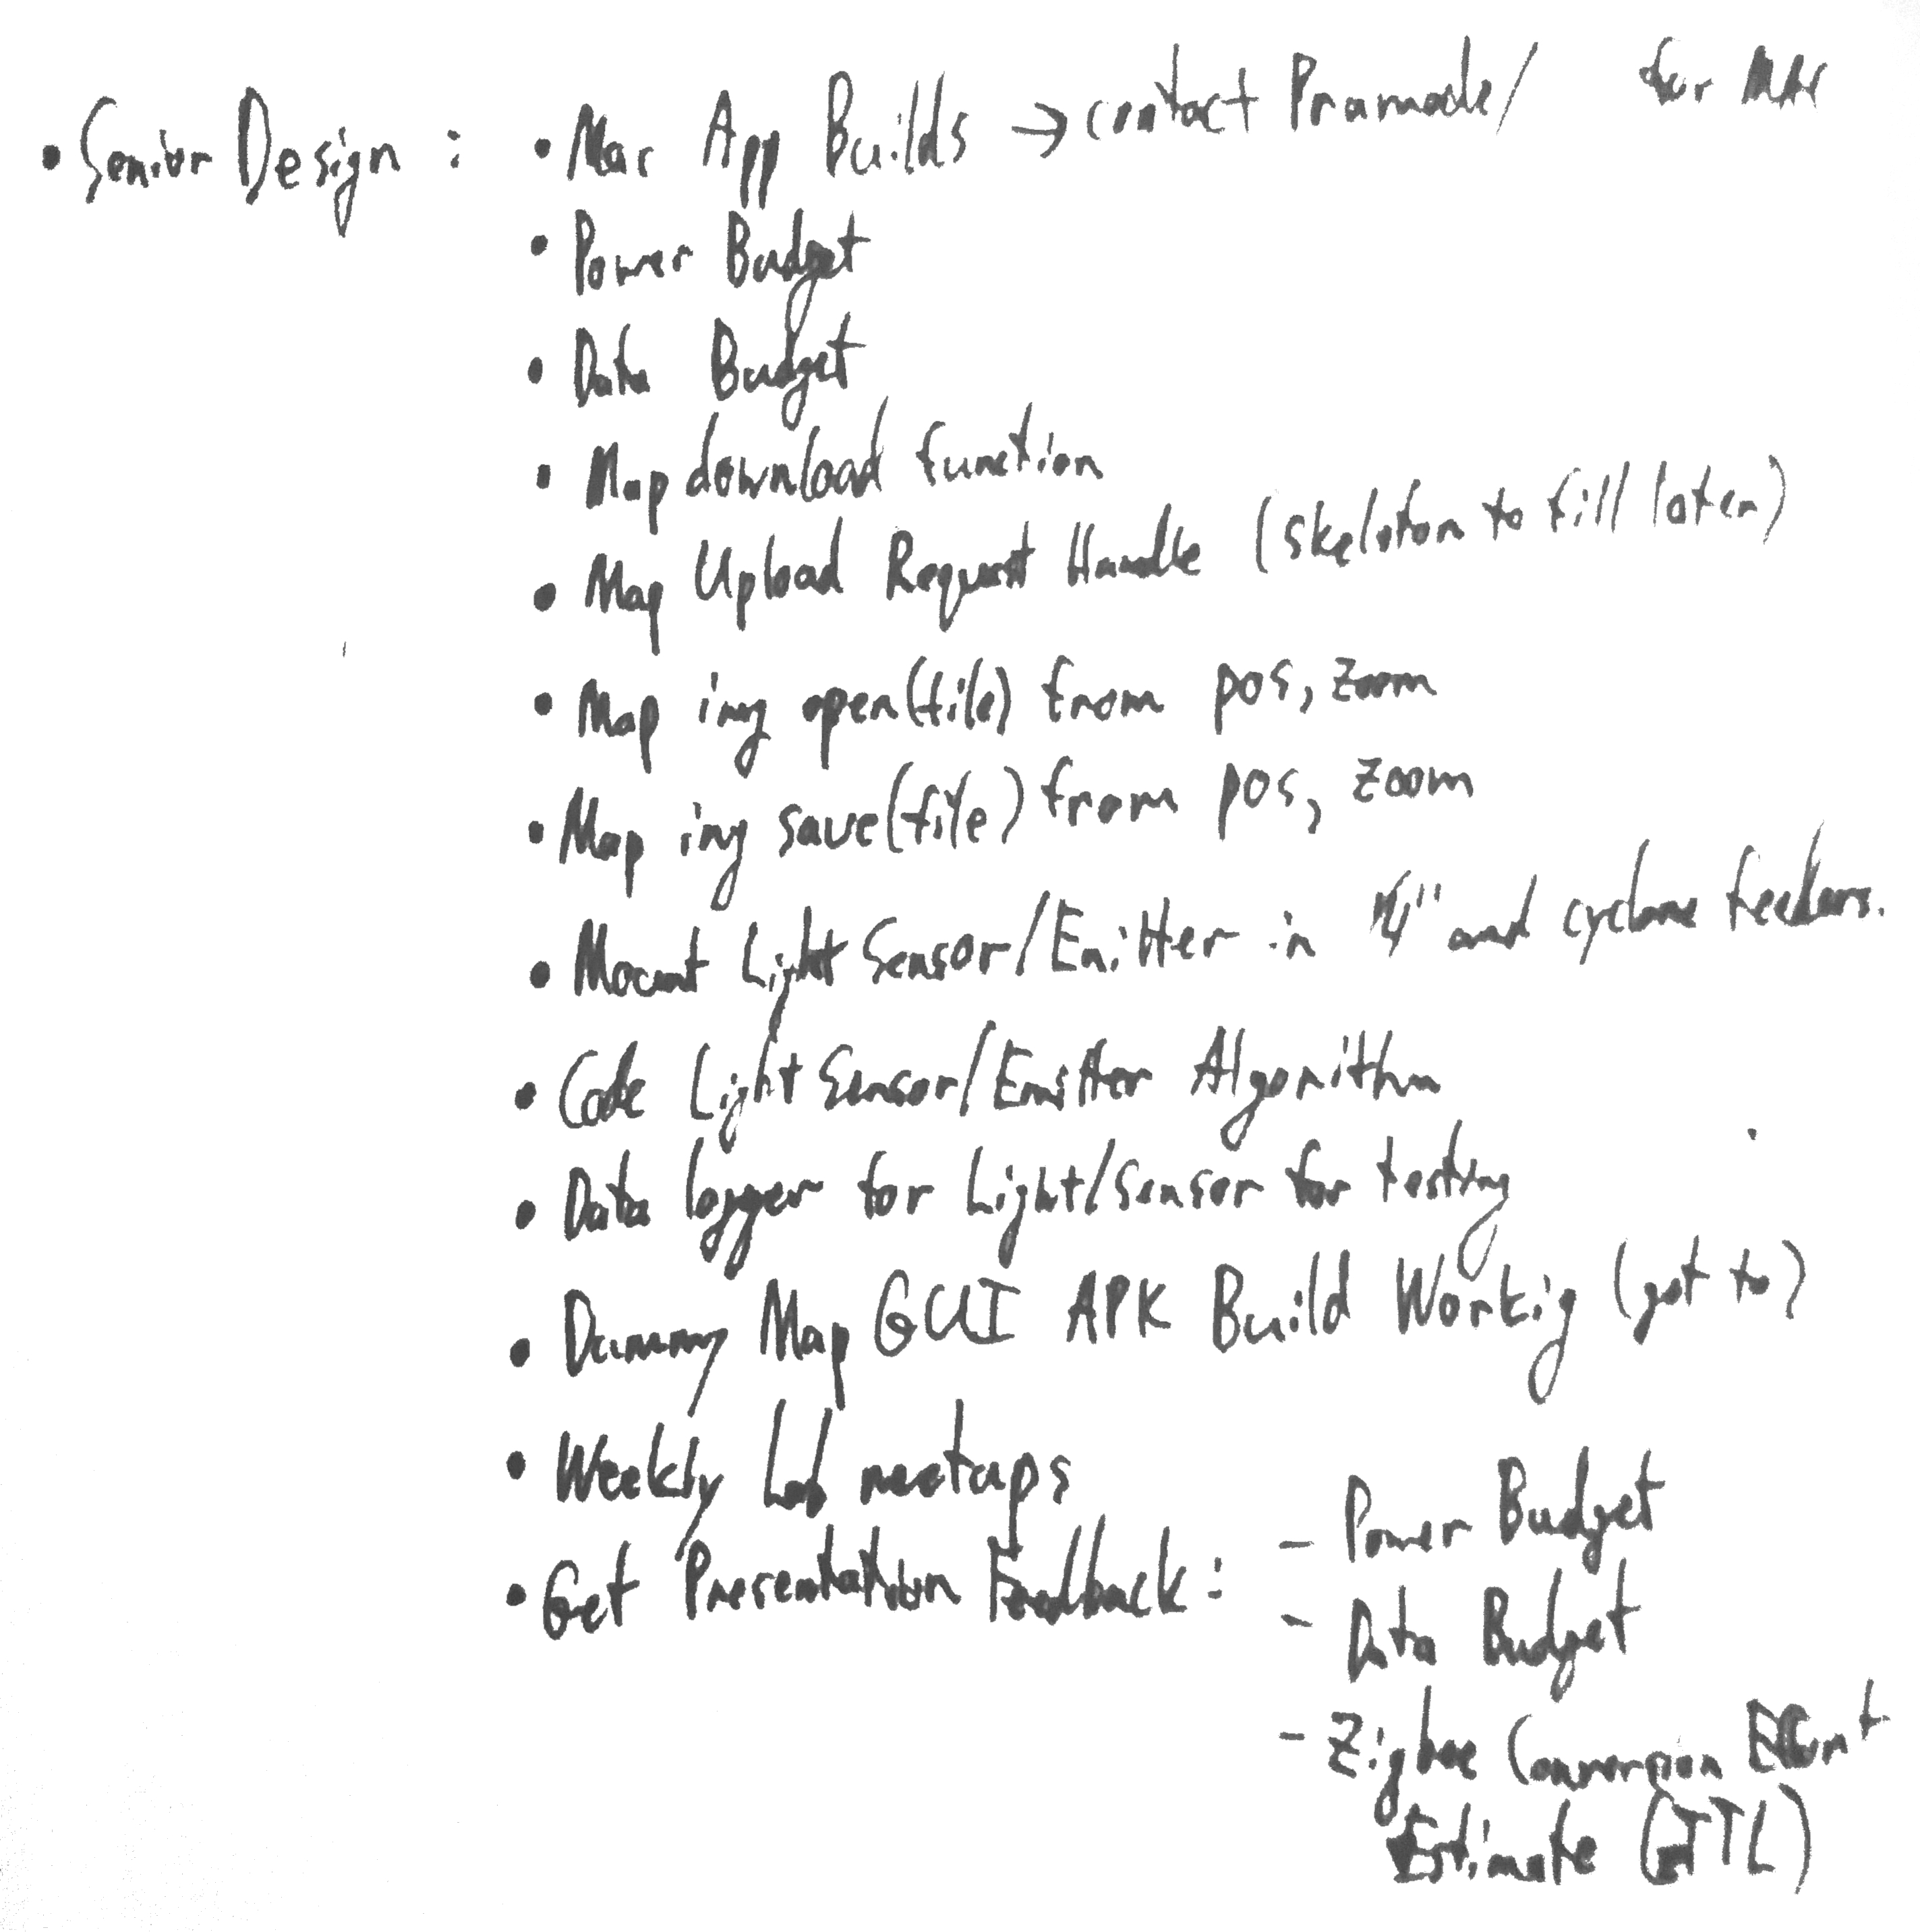 • Senior Design : • Mac App Builds → contact Pramode/ for MAC
• Power Budget
• Data Budget
• Map download function
• Map Upload Request Handle (skeleton to fill later)
• Map img open(file) from pos, zoom
• Map img save(file) from pos, zoom
• Mount Light Sensor/Emitter in 1/4" and cyclone feeders.
• Code Light Sensor/Emitter Algorithm
• Data logger for Light/sensor for testing
• Dummy Map GUI APK Build Workig (got to)
• Weekly Lab meetups
• Get Presentation Feedback : - Power Budget
- Data Budget
- Zigbee Conversion
Estimate (TTL)